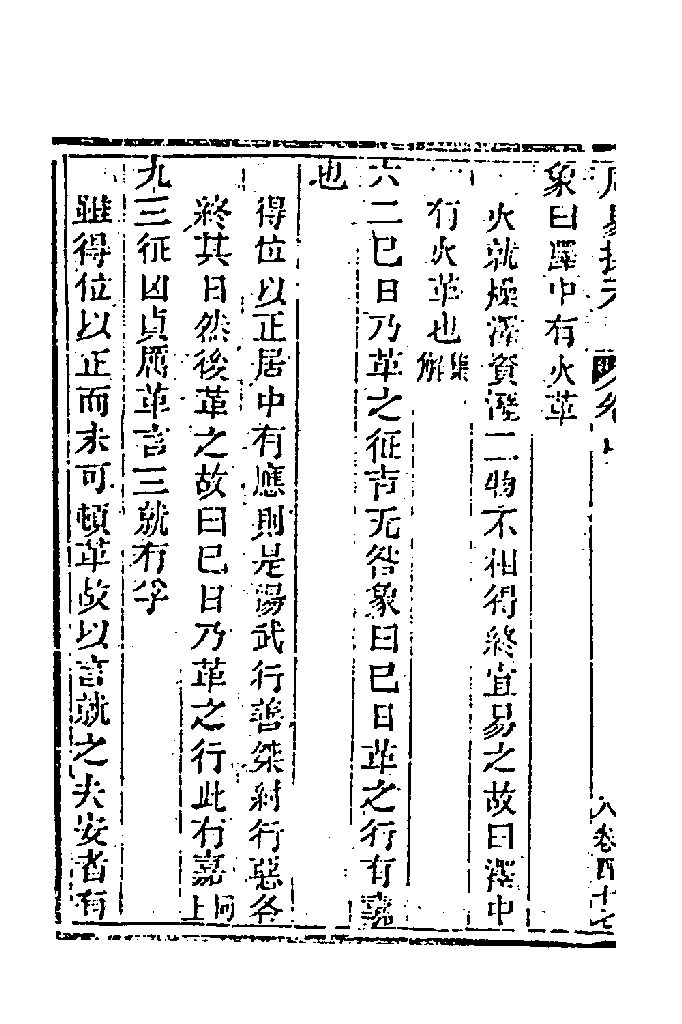 象曰澤中有火革
火就燥澤資溼二物不相得終宜易之故曰澤中
有火革也集解
六二巳日乃革之征吉无咎象曰巳日革之行有嘉
也
得位以正居中有應則是湯武行善桀紂行惡各
終其日然後革之故曰巳日乃革之行此有嘉同上
九三征凶貞厲革言三就有孚
雖得位以正而未可頓革故以言就之夫安者有